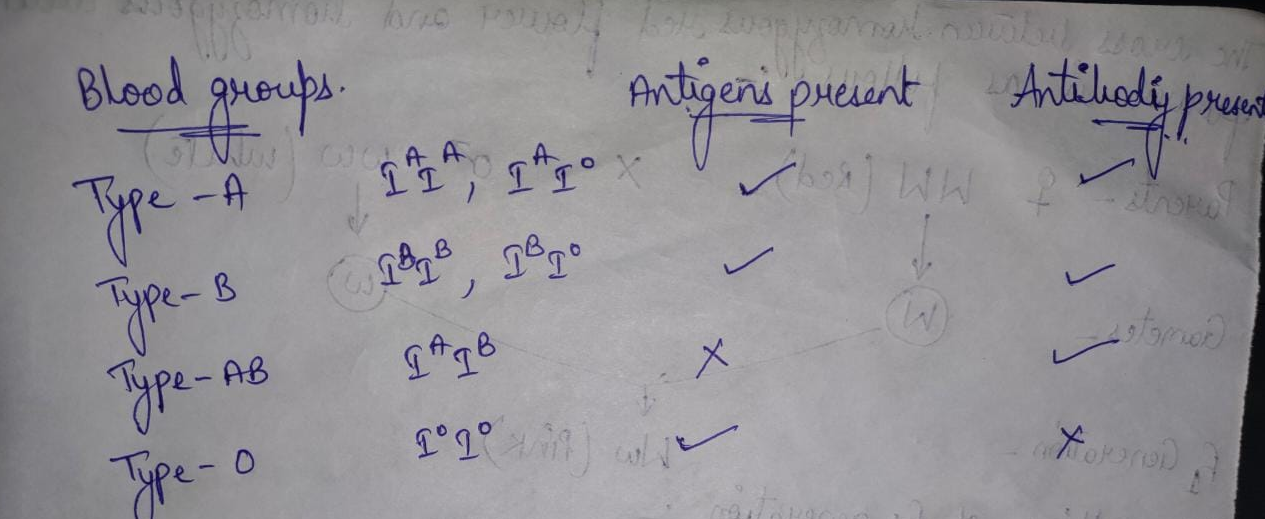 Blood groups. Antigens present Antibody present
Type - A IᴬIᴬ, IᴬI⁰ ✓ ✓
Type - B IᴮIᴮ, IᴮI⁰ ✓ ✓
Type - AB IᴬIᴮ X ✓
Type - O I⁰I⁰ ✓ X